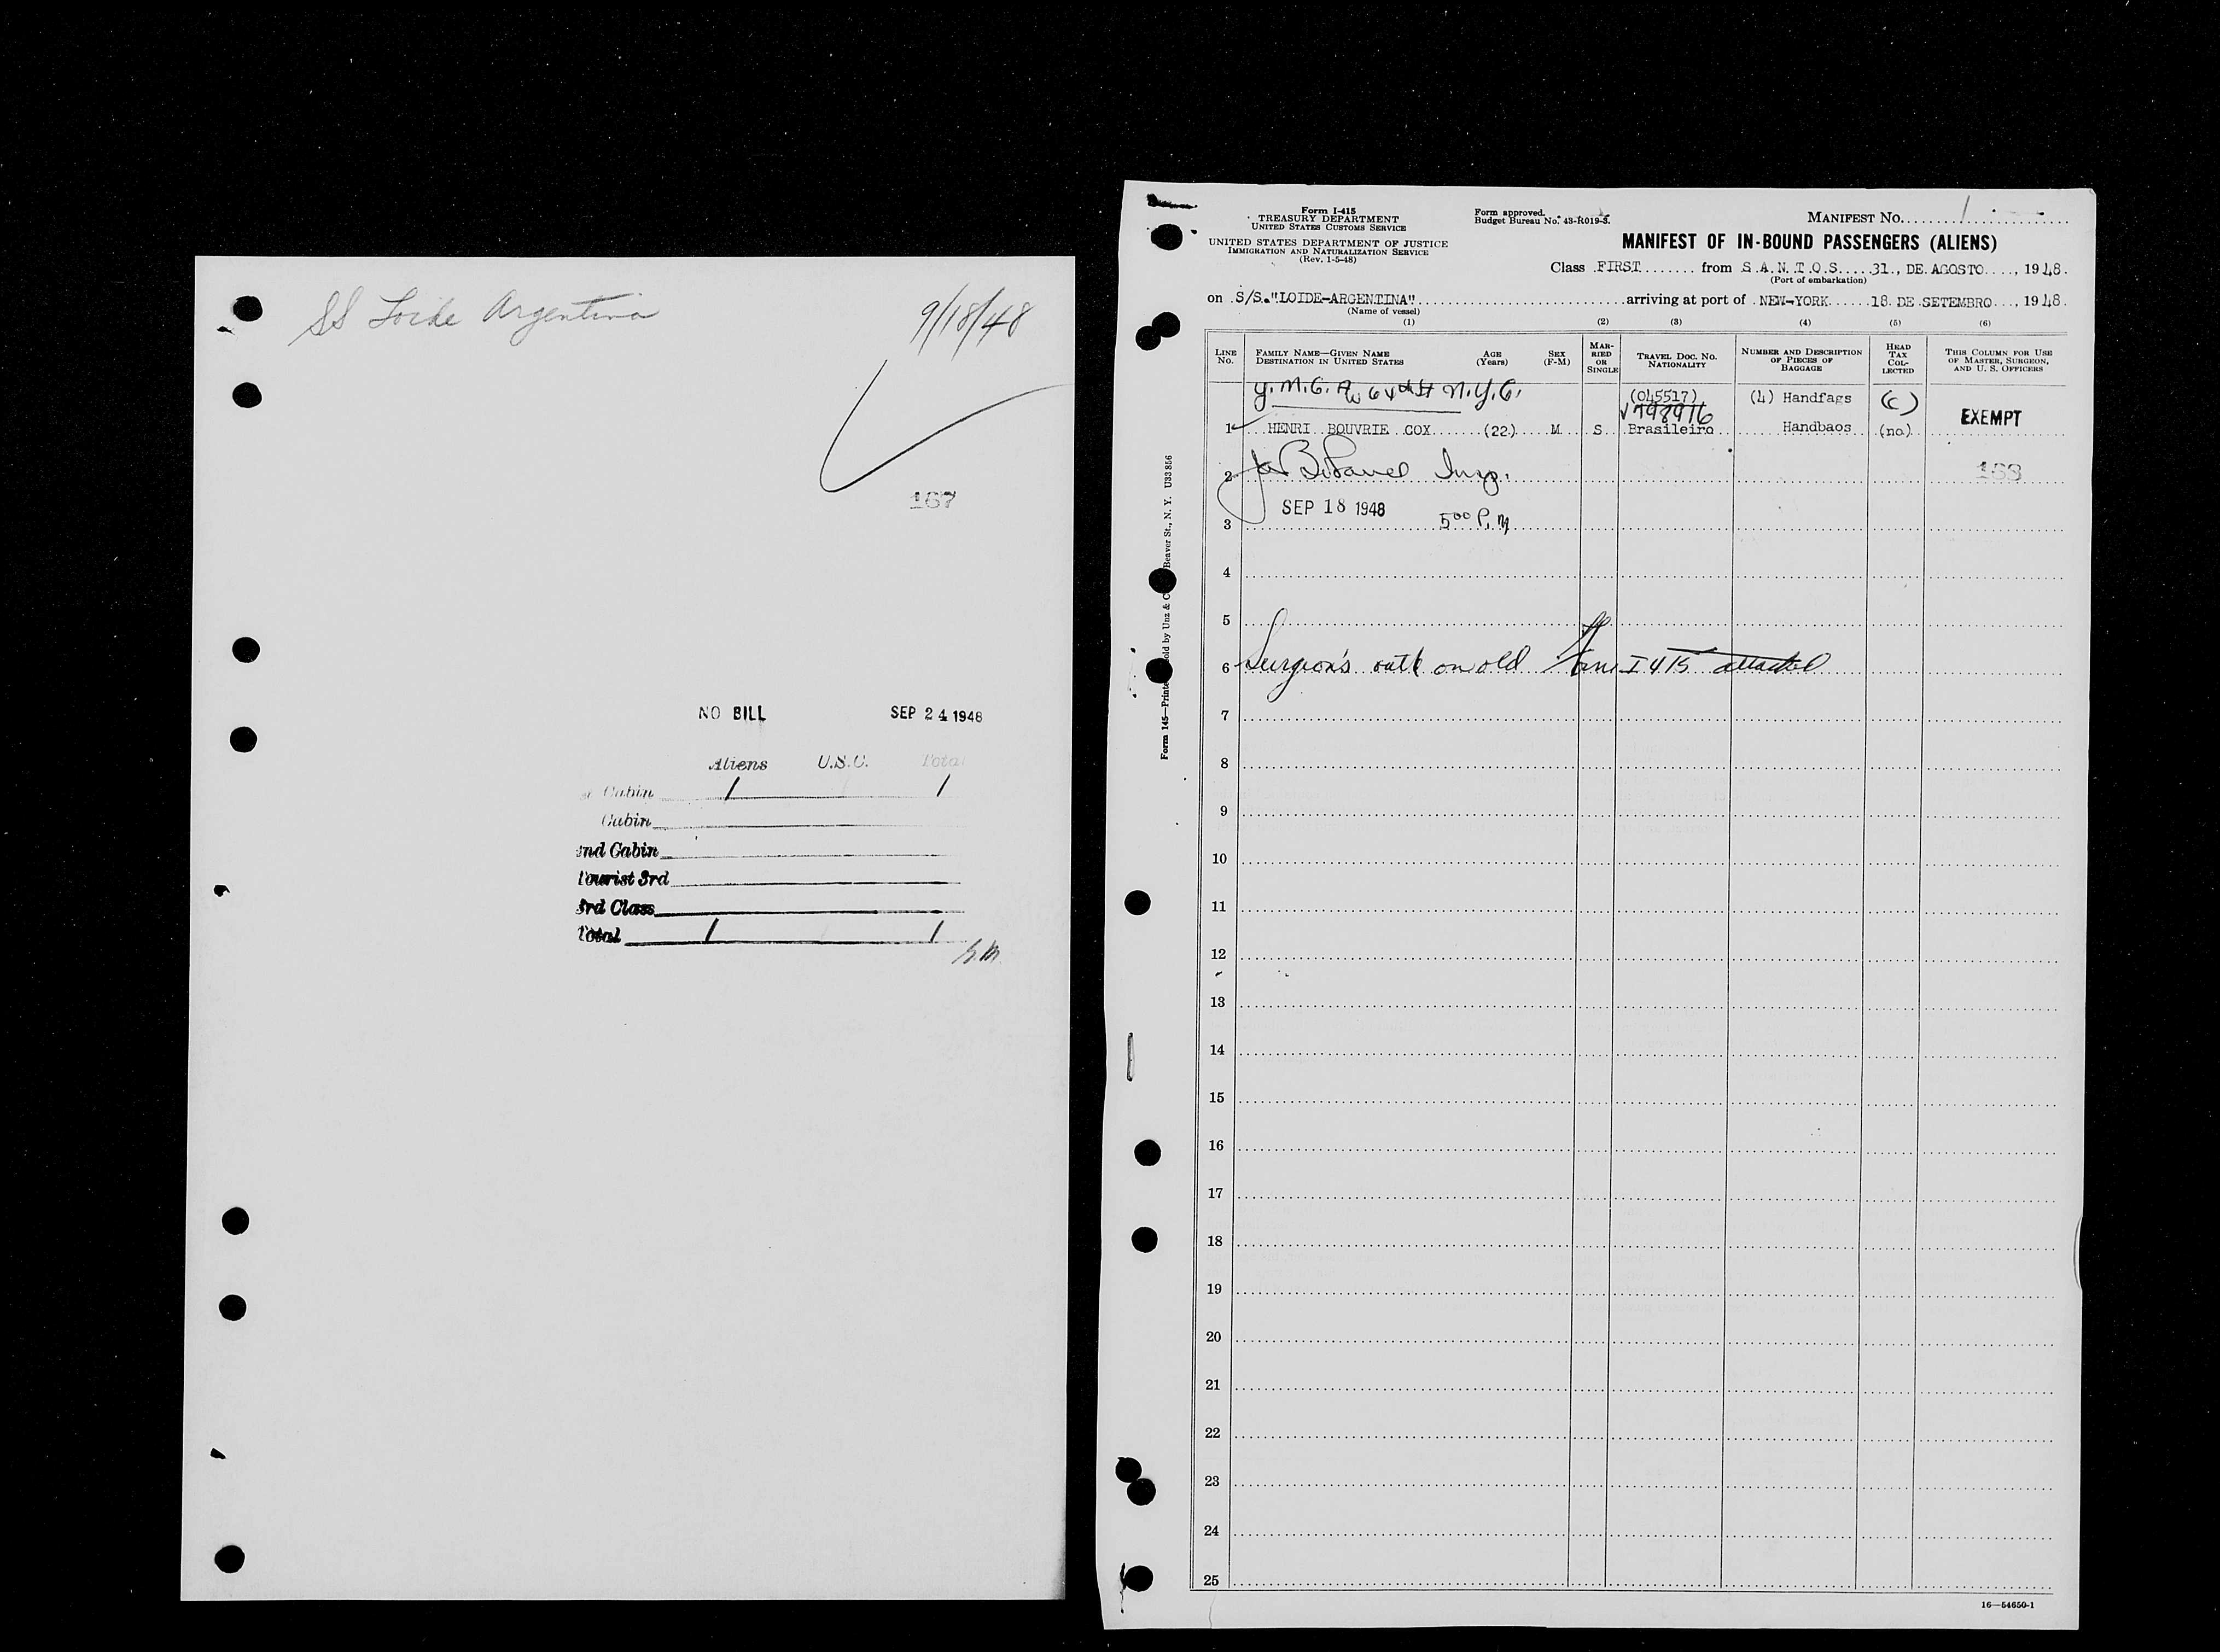 SS Loide Argentina 9/18/48
167
NO BILL SEP 24 1948
Aliens U.S.C. Total
Cabin 1 1
Cabin
2nd Cabin
Tourist 3rd
3rd Class
Total 1 1
Form I-415
TREASURY DEPARTMENT
UNITED STATES CUSTOMS SERVICE
UNITED STATES DEPARTMENT OF JUSTICE
IMMIGRATION AND NATURALIZATION SERVICE
(Rev. 1-5-48)
Form approved.
Budget Bureau No. 43-R019-3.
MANIFEST No. 1
MANIFEST OF IN-BOUND PASSENGERS (ALIENS)
Class FIRST from S.A.N.T.O.S. 31., DE AGOSTO, 1948.
(Port of embarkation)
on S/S."LOIDE-ARGENTINA" arriving at port of NEW-YORK 18. DE SETEMBRO, 1948.
(Name of vessel)
(1) (2) (3) (4) (5) (6)
LINE No.
FAMILY NAME—GIVEN NAME
DESTINATION IN UNITED STATES
AGE (Years)
SEX (F-M)
MARRIED OR SINGLE
TRAVEL DOC. NO.
NATIONALITY
NUMBER AND DESCRIPTION OF PIECES OF BAGGAGE
HEAD TAX COLLECTED
THIS COLUMN FOR USE OF MASTER, SURGEON, AND U. S. OFFICERS
Y.M.C.A. W 64th St N.Y.C.
(045517) (4) Handfags (c)
V798916 EXEMPT
1 HENRI BOUVRIE COX (22) M S Brasileiro Handbaos (no)
2 Insp. 168
SEP 18 1948 5 00 P.M
3
4
5
6 Surgeon's oath on old Form I 415 attached
7
8
9
10
11
12
13
14
15
16
17
18
19
20
21
22
23
24
25
Form 145—Printed Sold by Unz & Co Beaver St., N. Y. U33856
16—54650-1